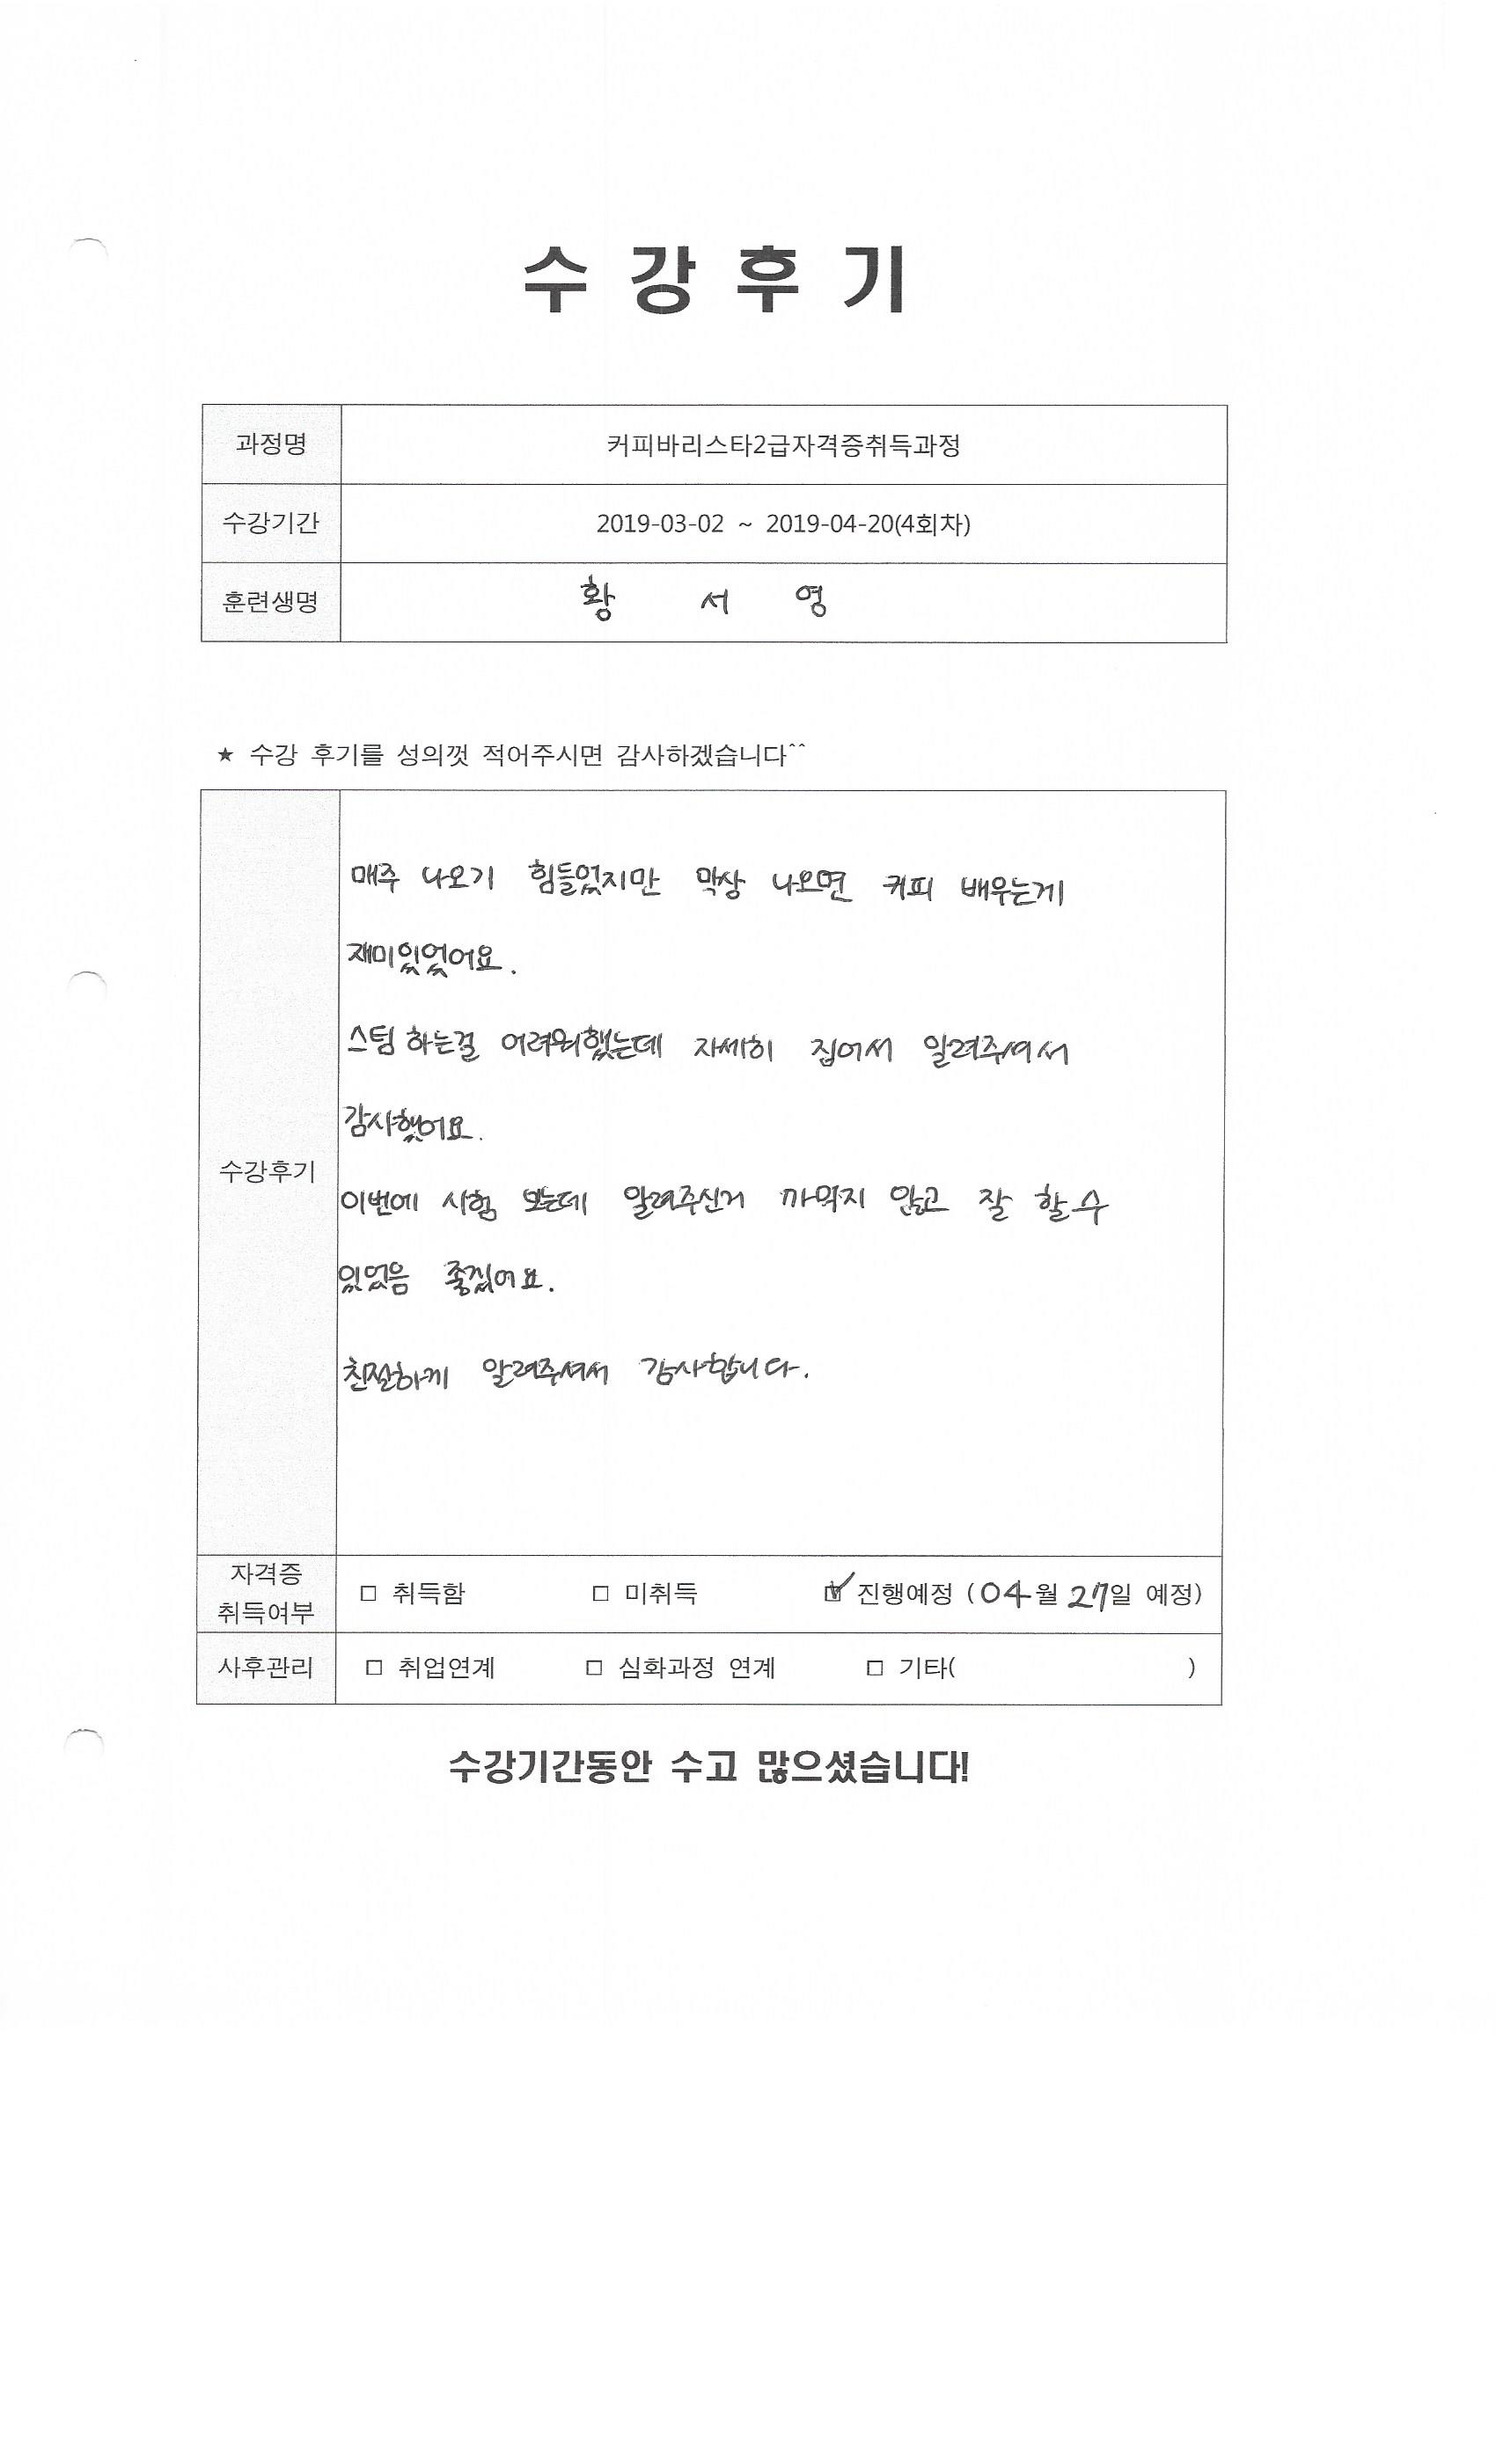 수 강 후 기
과정명 커피바리스타2급자격증취득과정
수강기간 2019-03-02 ~ 2019-04-20(4회차)
훈련생명 황 서 영
★ 수강 후기를 성의껏 적어주시면 감사하겠습니다^^
매주 나오기 힘들었지만 막상 나오면 커피 배우는게
재미있었어요.
스팀 하는걸 어려워했는데 자세히 집어서 알려주셔서
감사했어요.
수강후기
이번에 시험 보는데 알려주신거 까먹지 않고 잘 할 수
있었음 좋겠어요.
친절하게 알려주셔서 감사합니다.
자격증
취득여부 □ 취득함 □ 미취득 ☑ 진행예정 (04월 27일 예정)
사후관리 □ 취업연계 □ 심화과정 연계 □ 기타( )
수강기간동안 수고 많으셨습니다!